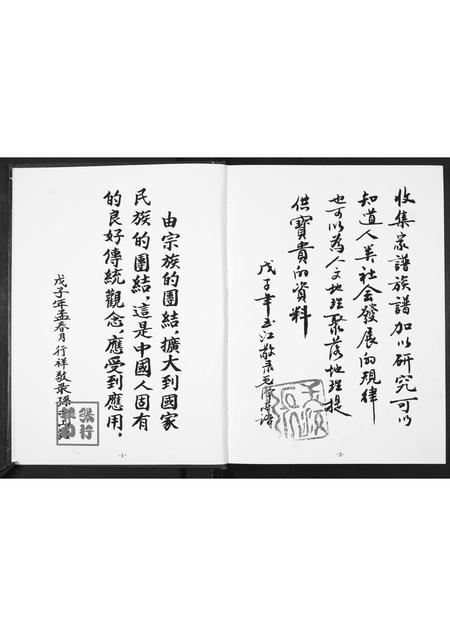 由宗族的團結，擴大到國家
民族的團結，這是中國人固有
的良好傳統觀念，應受到應用。
戊子年孟春月行祥敬录孫
-1-
收集家譜族譜加以研究可以
知道人类社会發展的規律
也可以為人文地理聚落地理提
供寶貴的資料
戊子年玉江敬录毛
-2-